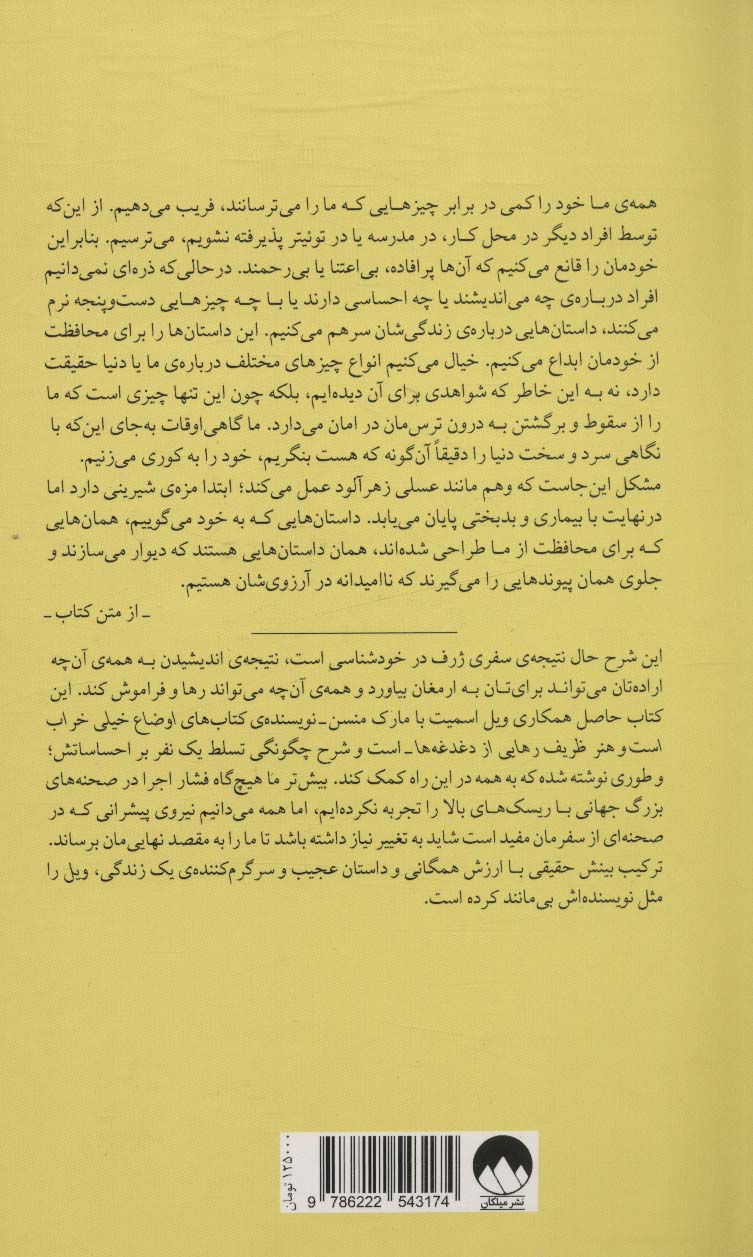 همه‌ی ما خود را کمی در برابر چیزهایی که ما را می‌ترسانند، فریب می‌دهیم. از این‌که
توسط افراد دیگر در محل کار، در مدرسه یا در توئیتر پذیرفته نشویم، می‌ترسیم. بنابراین
خودمان را قانع می‌کنیم که آن‌ها پرافاده، بی‌اعتنا یا بی‌رحمند. درحالی‌که ذره‌ای نمی‌دانیم
افراد درباره‌ی چه می‌اندیشند یا چه احساسی دارند یا با چه چیزهایی دست‌وپنجه نرم
می‌کنند، داستان‌هایی درباره‌ی زندگی‌شان سرهم می‌کنیم. این داستان‌ها را برای محافظت
از خودمان ابداع می‌کنیم. خیال می‌کنیم انواع چیزهای مختلف درباره‌ی ما یا دنیا حقیقت
دارد، نه به این خاطر که شواهدی برای آن دیده‌ایم، بلکه چون این تنها چیزی است که ما
را از سقوط و برگشتن به درون ترس‌مان در امان می‌دارد. ما گاهی‌اوقات به‌جای این‌که با
نگاهی سرد و سخت دنیا را دقیقاً آن‌گونه که هست بنگریم، خود را به کوری می‌زنیم.
مشکل این‌جاست که وهم مانند عسلی زهرآلود عمل می‌کند؛ ابتدا مزه‌ی شیرینی دارد اما
درنهایت با بیماری و بدبختی پایان می‌یابد. داستان‌هایی که به خود می‌گوییم، همان‌هایی
که برای محافظت از ما طراحی شده‌اند، همان داستان‌هایی هستند که دیوار می‌سازند و
جلوی همان پیوندهایی را می‌گیرند که ناامیدانه در آرزوی‌شان هستیم.
ـ از متن کتاب ـ
این شرح حال نتیجه‌ی سفری ژرف در خودشناسی است، نتیجه‌ی اندیشیدن به همه‌ی آن‌چه
اراده‌تان می‌تواند برای‌تان به ارمغان بیاورد و همه‌ی آن‌چه می‌تواند رها و فراموش کند. این
کتاب حاصل همکاری ویل اسمیت با مارک منسن ـ نویسنده‌ی کتاب‌های اوضاع خیلی خراب
است و هنر ظریف رهایی از دغدغه‌ها ـ است و شرح چگونگی تسلط یک نفر بر احساساتش؛
و طوری نوشته شده که به همه در این راه کمک کند. بیش‌تر ما هیچ‌گاه فشار اجرا در صحنه‌های
بزرگ جهانی با ریسک‌های بالا را تجربه نکرده‌ایم، اما همه می‌دانیم نیروی پیشرانی که در
صحنه‌ای از سفرمان مفید است شاید به تغییر نیاز داشته باشد تا ما را به مقصد نهایی‌مان برساند.
ترکیب بینش حقیقی با ارزش همگانی و داستان عجیب و سرگرم‌کننده‌ی یک زندگی، ویل را
مثل نویسنده‌اش بی‌مانند کرده است.
۱۲۵۰۰۰ تومان
9 786222 543174
نشر میلکان